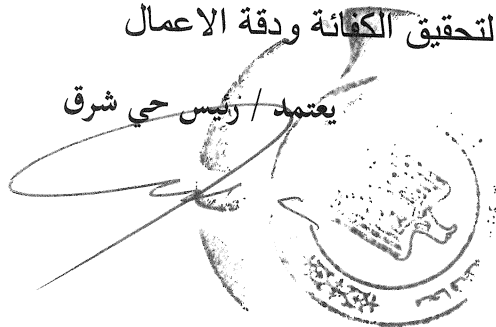 لتحقيق الكفائة ودقة الاعمال
يعتمد / رئيس حي شرق